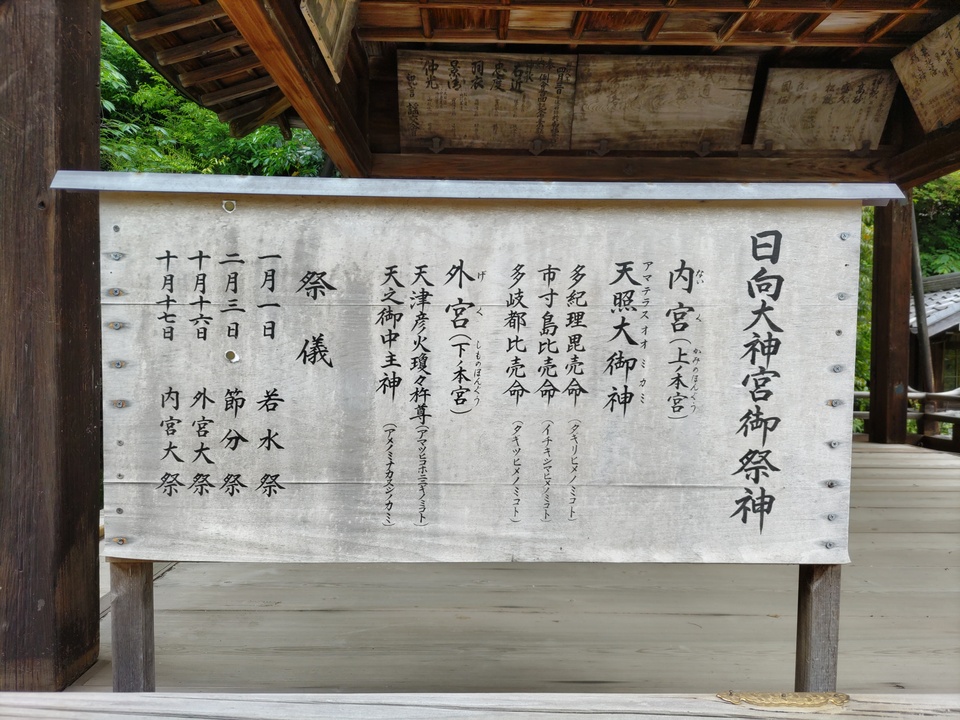 右近
忠度
羽衣
景清
仲光
日向大神宮御祭神
内宮(上ノ本宮)
ないく かみのほんぐう
天照大御神
アマテラスオオミカミ
多紀理毘売命(タキリヒメノミコト)
市寸島比売命(イチキシマヒメノミコト)
多岐都比売命(タキツヒメノミコト)
外宮(下ノ本宮)
げく しものほんぐう
天津彦火瓊々杵尊(アマツヒコホニニギノミコト)
天之御中主神(アメノミナカヌシノカミ)
祭儀
一月一日 若水祭
二月三日 節分祭
十月十六日 外宮大祭
十月十七日 内宮大祭